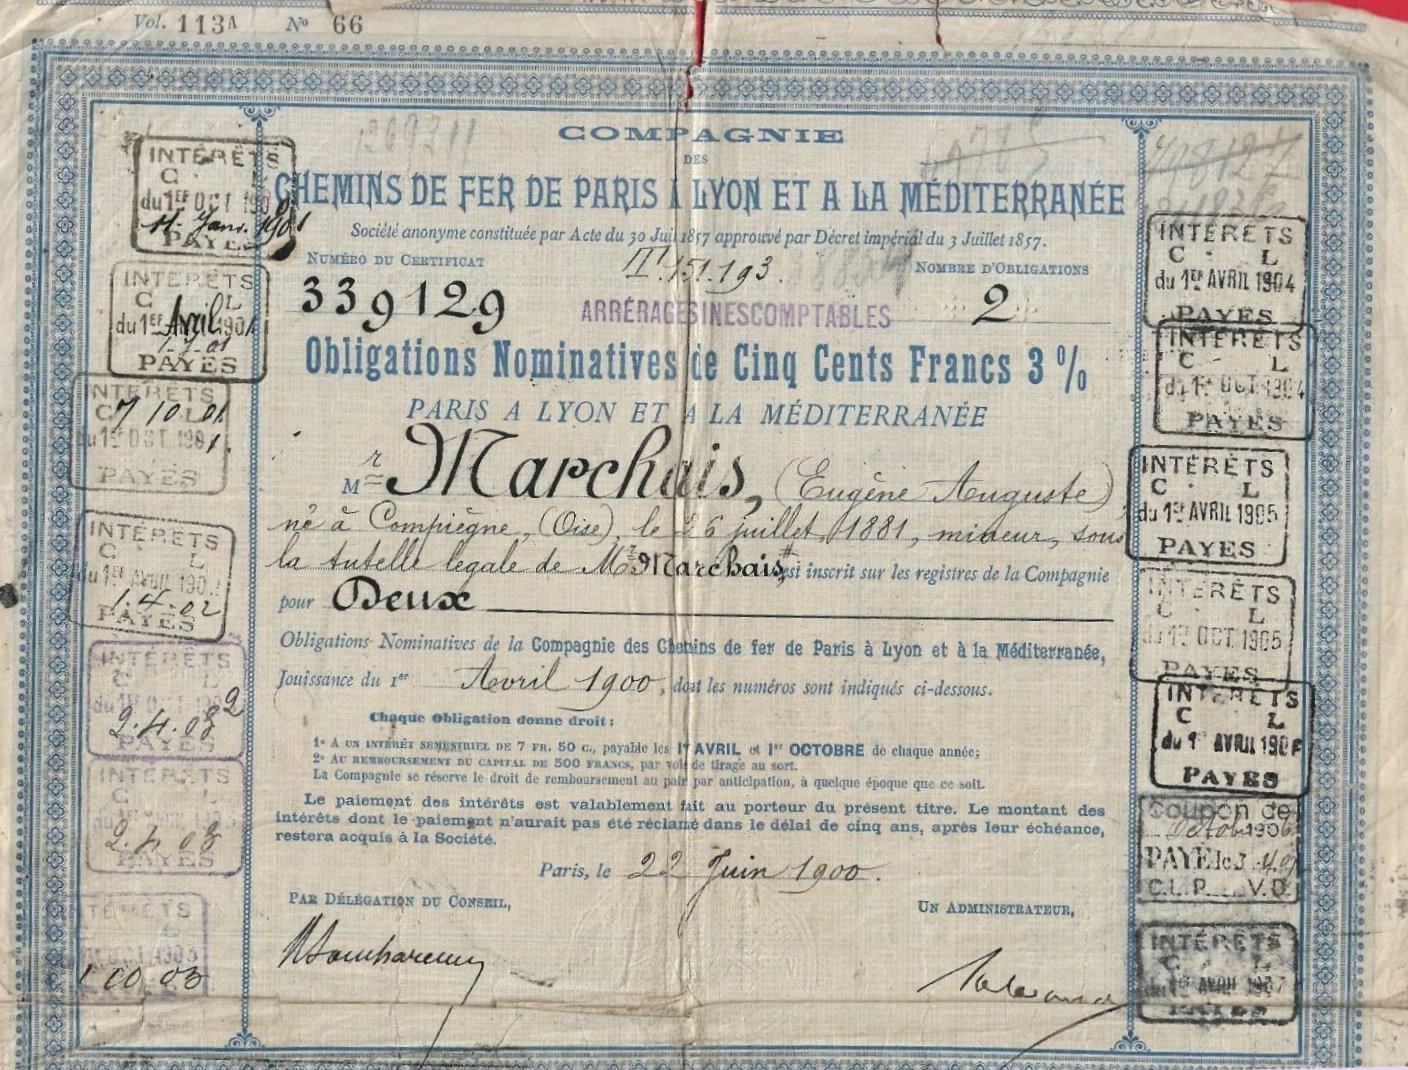 Vol. 113A No 66
COMPAGNIE
DES
CHEMINS DE FER DE PARIS A LYON ET A LA MÉDITERRANÉE
Société anonyme constituée par Acte du 30 Juin 1857 approuvé par Décret impérial du 3 Juillet 1857.
NUMÉRO DU CERTIFICAT
151.193
NOMBRE D'OBLIGATIONS
339129
ARRÉRAGES INESCOMPTABLES
2
Obligations Nominatives de Cinq Cents Francs 3%
PARIS A LYON ET A LA MÉDITERRANÉE
Mr Marchais, (Eugène Auguste)
né à Compiègne, (Oise), le 26 juillet 1881, mineur, sous
la tutelle legale de Mr Marchais est inscrit sur les registres de la Compagnie
pour Deux
Obligations Nominatives de la Compagnie des Chemins de fer de Paris à Lyon et à la Méditerranée,
Jouissance du 1er Avril 1900, dont les numéros sont indiqués ci-dessous.
Chaque Obligation donne droit:
1° A UN INTÉRÊT SEMESTRIEL DE 7 FR. 50 C., payable les 1er AVRIL et 1er OCTOBRE de chaque année;
2° AU REMBOURSEMENT DU CAPITAL DE 500 FRANCS, par voie de tirage au sort.
La Compagnie se réserve le droit de remboursement au pair par anticipation, à quelque époque que ce soit.
Le paiement des intérêts est valablement fait au porteur du présent titre. Le montant des
intérêts dont le paiement n'aurait pas été réclamé dans le délai de cinq ans, après leur échéance,
restera acquis à la Société.
Paris, le 22 Juin 1900.
PAR DÉLÉGATION DU CONSEIL,
UN ADMINISTRATEUR,
INTÉRÊTS
C L
du 1ER OCT 190
11 Janv. 1901
PAYÉS
INTÉRÊTS
C L
du 1ER Avril 1901
1.4.01
PAYÉS
INTÉRÊTS
C L
7 10 01
du 1ER OCT. 1901
PAYÉS
INTÉRÊTS
C L
du 1ER AVRIL 190
1.4.02
PAYÉS
INTÉRÊTS
C L
2
2.4.03
PAYÉS
INTÉRÊTS
C L
2.4 03
PAYÉS
INTÉRÊTS
L
OCT 1903
1 10 03
INTÉRÊTS
C L
du 1ER AVRIL 1904
PAYÉS
INTÉRÊTS
C L
du 1ER OCT 1904
PAYÉS
INTÉRÊTS
C L
du 1ER AVRIL 1905
PAYÉS
INTÉRÊTS
C L
du 1ER OCT 1905
PAYÉS
INTÉRÊTS
C L
du 1ER AVRIL 190
PAYÉS
Coupon de
Octob 1906
PAYÉ le 3
C.L.P. V.D.
INTÉRÊTS
C L
du 1ER AVRIL 1907
PAYÉS